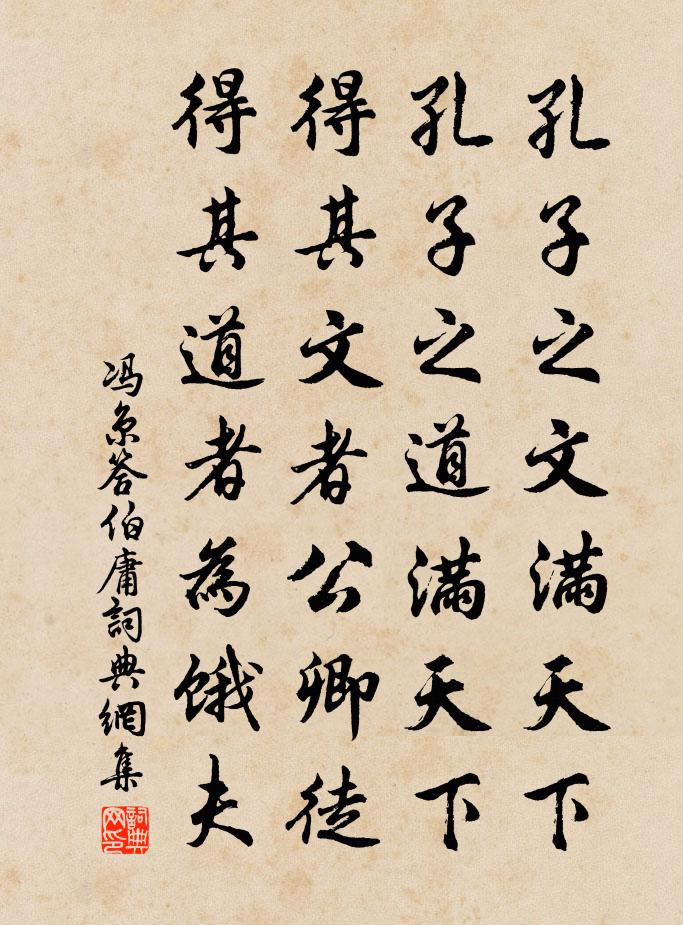 孔子之文满天下
孔子之道满天下
得其文者公卿徒
得其道者為饿夫
冯京答伯庸詞典網集
詞典網印